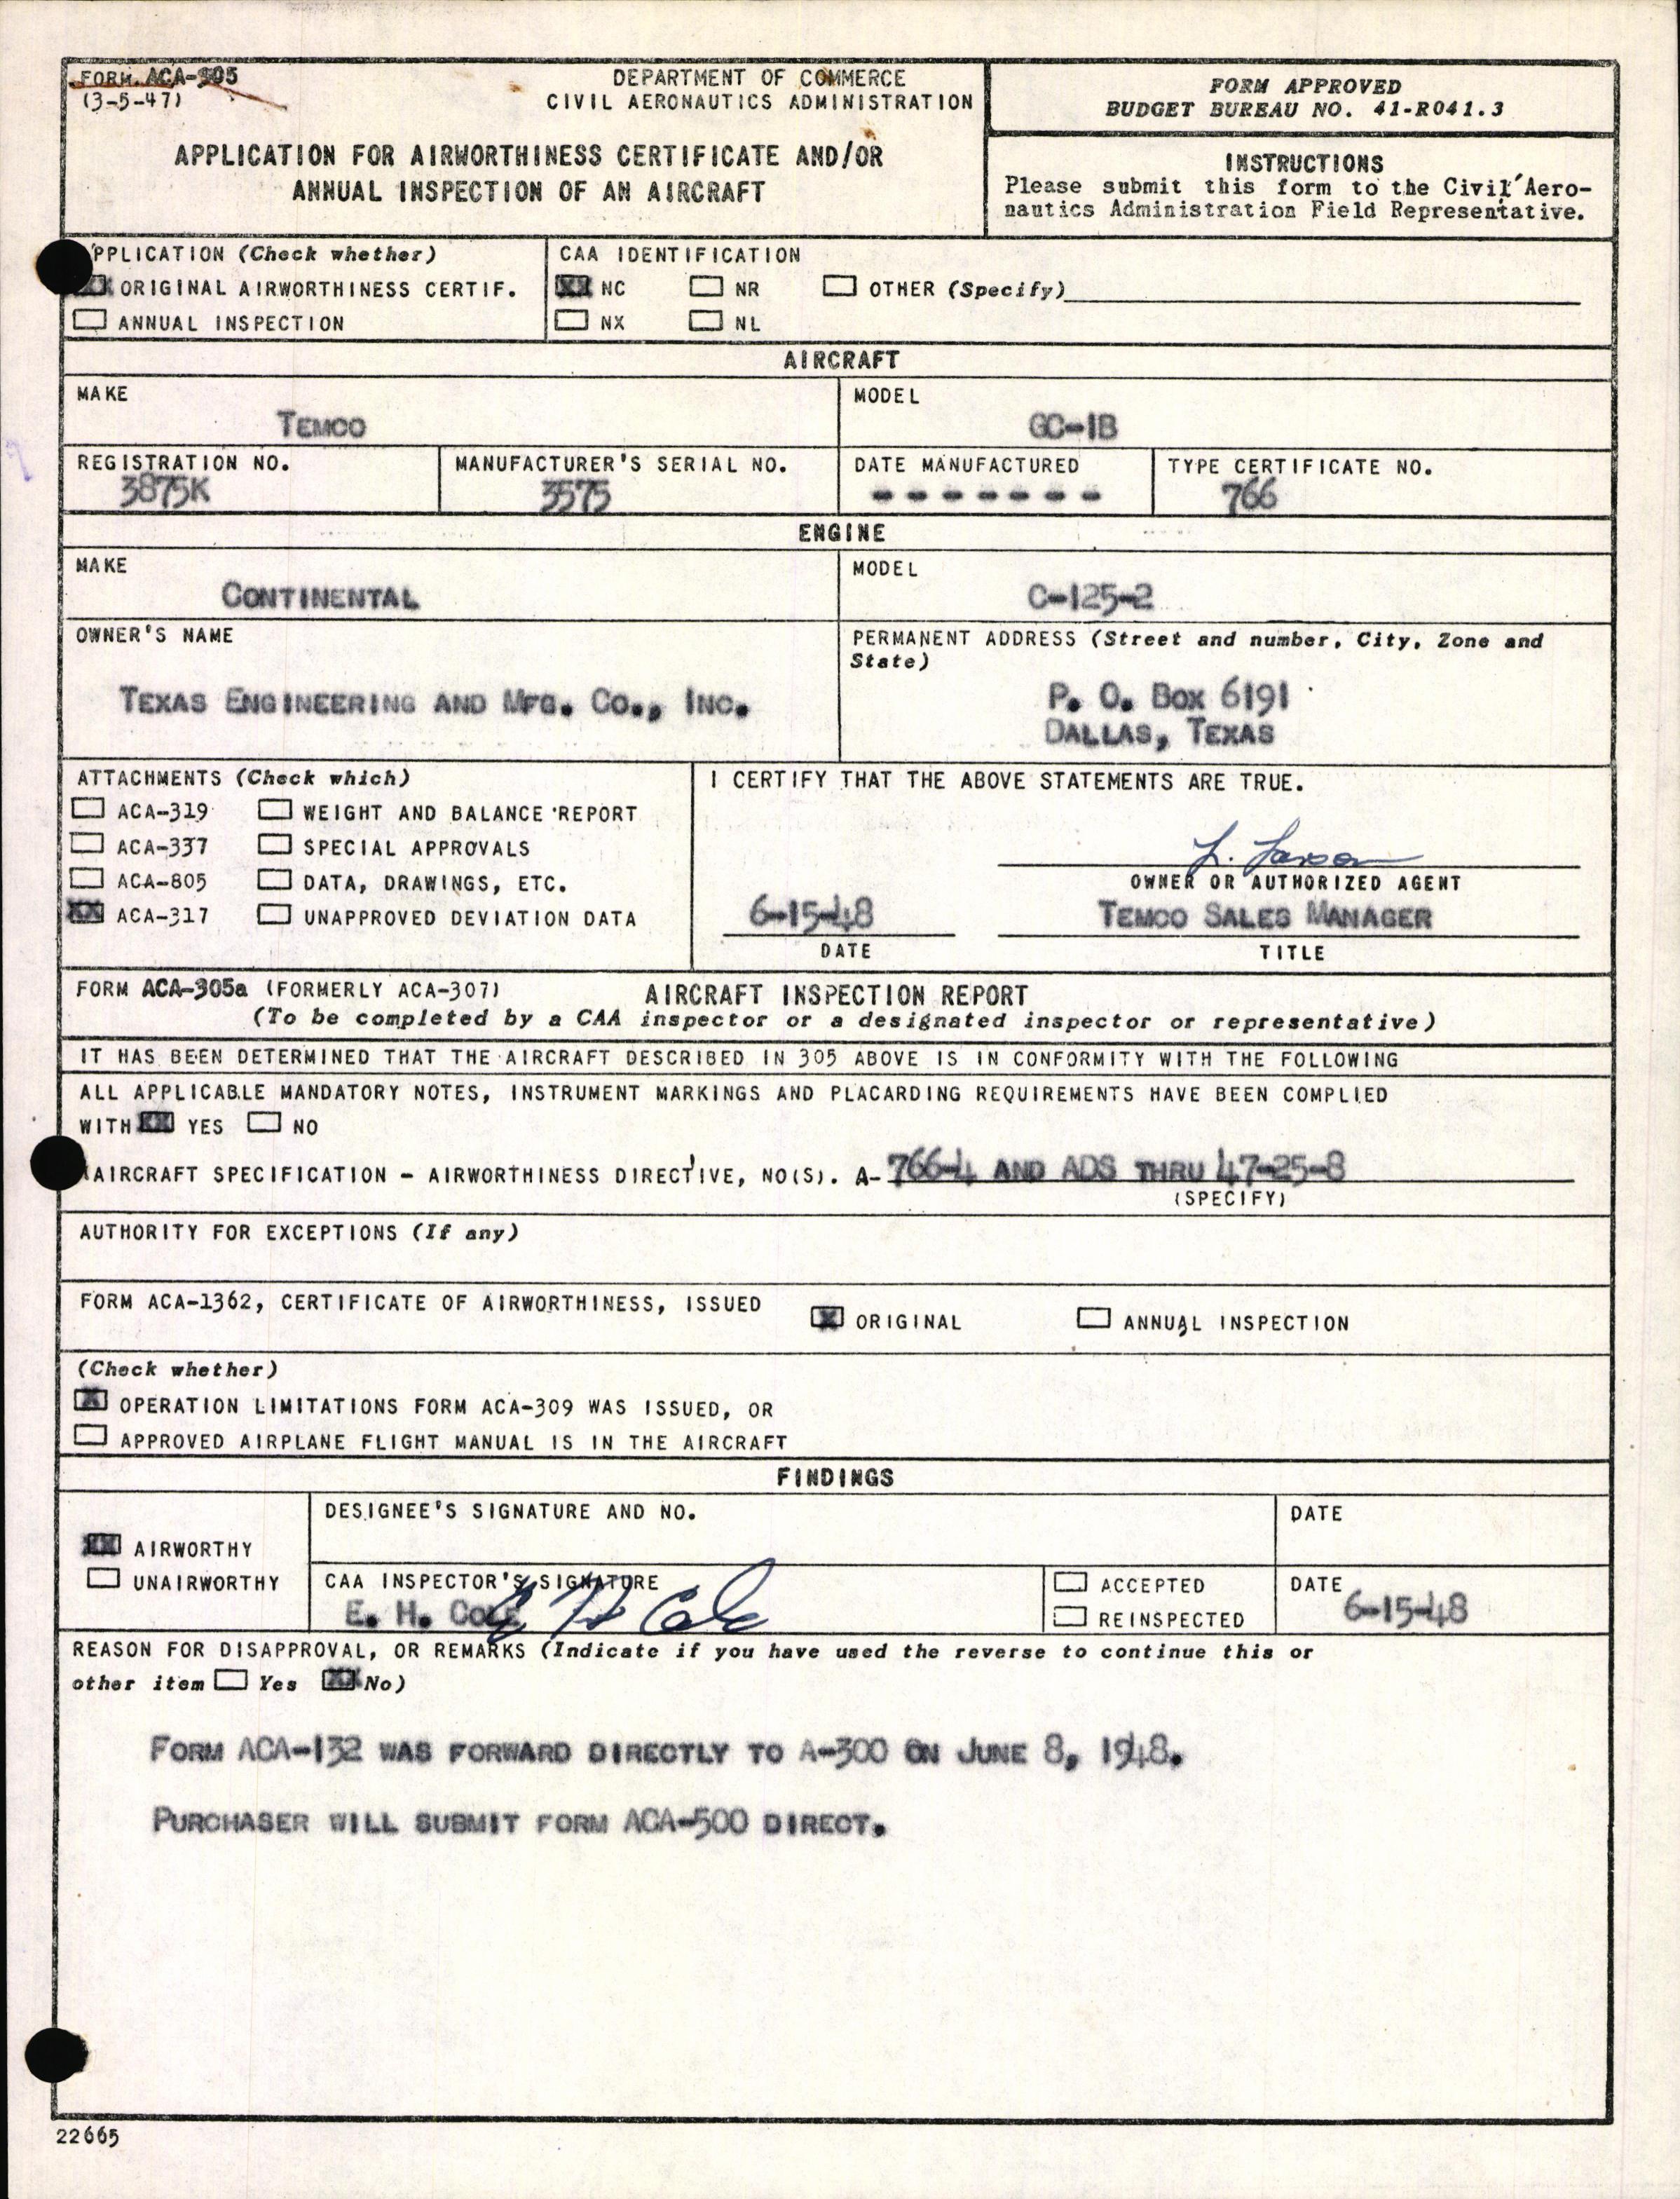 FORM ACA-305
(3-5-47)
DEPARTMENT OF COMMERCE
CIVIL AERONAUTICS ADMINISTRATION
APPLICATION FOR AIRWORTHINESS CERTIFICATE AND/OR
ANNUAL INSPECTION OF AN AIRCRAFT
FORM APPROVED
BUDGET BUREAU NO. 41-R041.3
INSTRUCTIONS
Please submit this form to the Civil Aero-
nautics Administration Field Representative.
PPLICATION (Check whether)
XX ORIGINAL AIRWORTHINESS CERTIF.
ANNUAL INSPECTION
CAA IDENTIFICATION
XX NC NR OTHER (Specify)
NX NL
AIRCRAFT
MAKE
TEMCO
MODEL
GC-1B
REGISTRATION NO.
3875K
MANUFACTURER'S SERIAL NO.
3575
DATE MANUFACTURED
- - - - - - -
TYPE CERTIFICATE NO.
766
ENGINE
MAKE
CONTINENTAL
MODEL
C-125-2
OWNER'S NAME
TEXAS ENGINEERING AND MFG. CO., INC.
PERMANENT ADDRESS (Street and number, City, Zone and
State)
P. O. BOX 6191
DALLAS, TEXAS
ATTACHMENTS (Check which)
ACA-319 WEIGHT AND BALANCE REPORT
ACA-337 SPECIAL APPROVALS
ACA-805 DATA, DRAWINGS, ETC.
XX ACA-317 UNAPPROVED DEVIATION DATA
I CERTIFY THAT THE ABOVE STATEMENTS ARE TRUE.
L. Larson
OWNER OR AUTHORIZED AGENT
6-15-48 TEMCO SALES MANAGER
DATE TITLE
FORM ACA-305a (FORMERLY ACA-307) AIRCRAFT INSPECTION REPORT
(To be completed by a CAA inspector or a designated inspector or representative)
IT HAS BEEN DETERMINED THAT THE AIRCRAFT DESCRIBED IN 305 ABOVE IS IN CONFORMITY WITH THE FOLLOWING
ALL APPLICABLE MANDATORY NOTES, INSTRUMENT MARKINGS AND PLACARDING REQUIREMENTS HAVE BEEN COMPLIED
WITH XX YES NO
AIRCRAFT SPECIFICATION - AIRWORTHINESS DIRECTIVE, NO(S). A- 766-4 AND ADS THRU 47-25-8
(SPECIFY)
AUTHORITY FOR EXCEPTIONS (If any)
FORM ACA-1362, CERTIFICATE OF AIRWORTHINESS, ISSUED X ORIGINAL ANNUAL INSPECTION
(Check whether)
X OPERATION LIMITATIONS FORM ACA-309 WAS ISSUED, OR
APPROVED AIRPLANE FLIGHT MANUAL IS IN THE AIRCRAFT
FINDINGS
XX AIRWORTHY
UNAIRWORTHY
DESIGNEE'S SIGNATURE AND NO.
DATE
CAA INSPECTOR'S SIGNATURE
E. H. COLE E H Cole
ACCEPTED
REINSPECTED
DATE
6-15-48
REASON FOR DISAPPROVAL, OR REMARKS (Indicate if you have used the reverse to continue this or
other item Yes XX No)
FORM ACA-132 WAS FORWARD DIRECTLY TO A-300 ON JUNE 8, 1948.
PURCHASER WILL SUBMIT FORM ACA-500 DIRECT.
22665